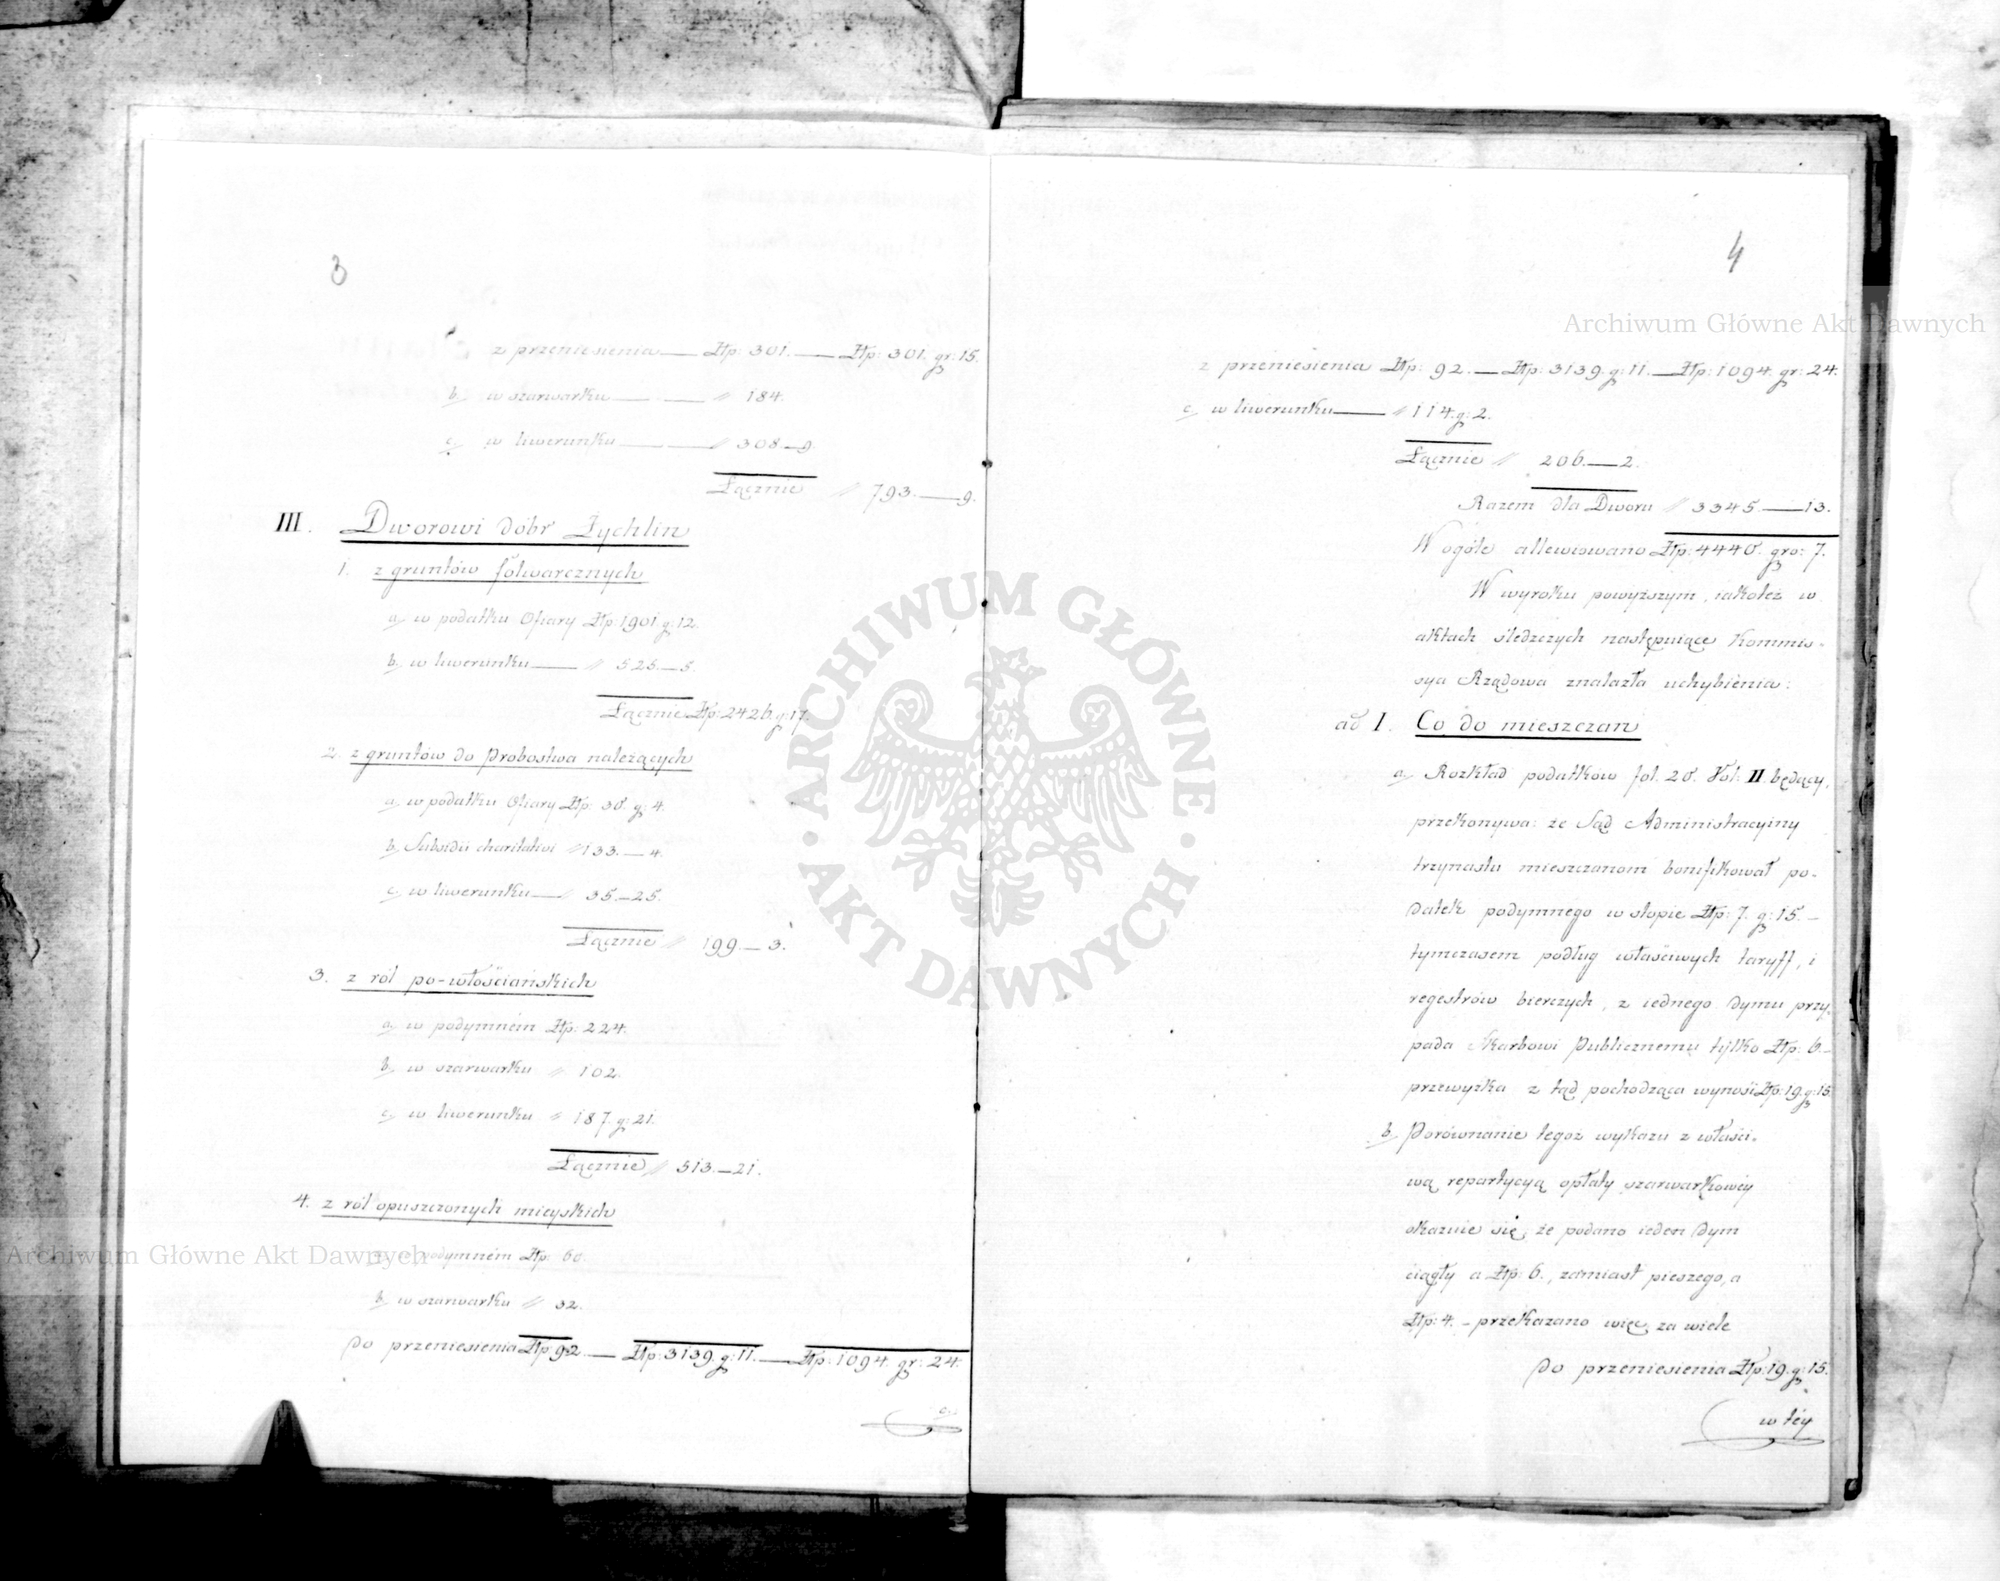 3
z przeniesienia — Złp: 301. — Złp: 301. gr: 15.
b, w szarwarku — — " 184.
c, w liwerunku — — " 308 — 9.
Łącznie " 793. — 9.
III. Dworowi dóbr Żychlin
1. z gruntów folwarcznych
a, w podatku Ofiary Złp: 1901. g: 12.
b, w liwerunku — " 525. — 5.
Łącznie Złp: 2426. g: 17.
2. z gruntów do Probostwa należących
a, w podatku Ofiary Złp: 30. g: 4.
b, Subsidii charitativi " 133. — 4.
c, w liwerunku — " 35. — 25.
Łącznie " 199. — 3.
3. z ról po-włościańskich
a, w podymném Złp: 224.
b, w szarwarku " 102.
c, w liwerunku " 187. g: 21.
Łącznie " 513. — 21.
4. z ról opuszczonych mieyskich
a, w podymném Złp: 60.
b, w szarwarku " 32.
Do przeniesienia Złp: 92. — Złp: 3139. g: 11. — Złp: 1094. gr: 24.
c,
4
z przeniesienia Złp: 92. — Złp: 3139. g: 11. — Złp: 1094. gr: 24.
c, w liwerunku — " 114. g: 2.
Łącznie " 206. — 2.
Razem dla Dworu " 3345. — 13.
W ogóle allewiowano Złp: 4440. gro: 7.
W wyroku powyższym, iakoteż w
aktach śledczych następuiące Kommis-
sya Rządowa znalazła uchybienia:
ad I. Co do mieszczan
a, Rozkład podatków fol. 20. Vol: II. będący,
przekonywa: że Sąd Administracyiny
trzynastu mieszczanom bonifikował po-
datek podymnego w stopie Złp: 7. g: 15. —
tymczasem podług właściwych taryff, i
regestrów bierczych, z iednego dymu przy-
pada Skarbowi Publicznemu tylko Złp: 6. —
przewyżka z tąd pochodząca wynosi Złp: 19. g: 15.
b, Porównanie tegoż wykazu z właści-
wą repartycyą opłaty szarwarkowéy
okazuie się, że podano ieden dym
ciągły a Złp: 6., zamiast pieszego, a
Złp: 4. — przekazano więc za wiele
Do przeniesienia Złp: 19. g: 15.
w téy
Archiwum Główne Akt Dawnych
Archiwum Główne Akt Dawnych
ARCHIWUM GŁÓWNE
AKT DAWNYCH